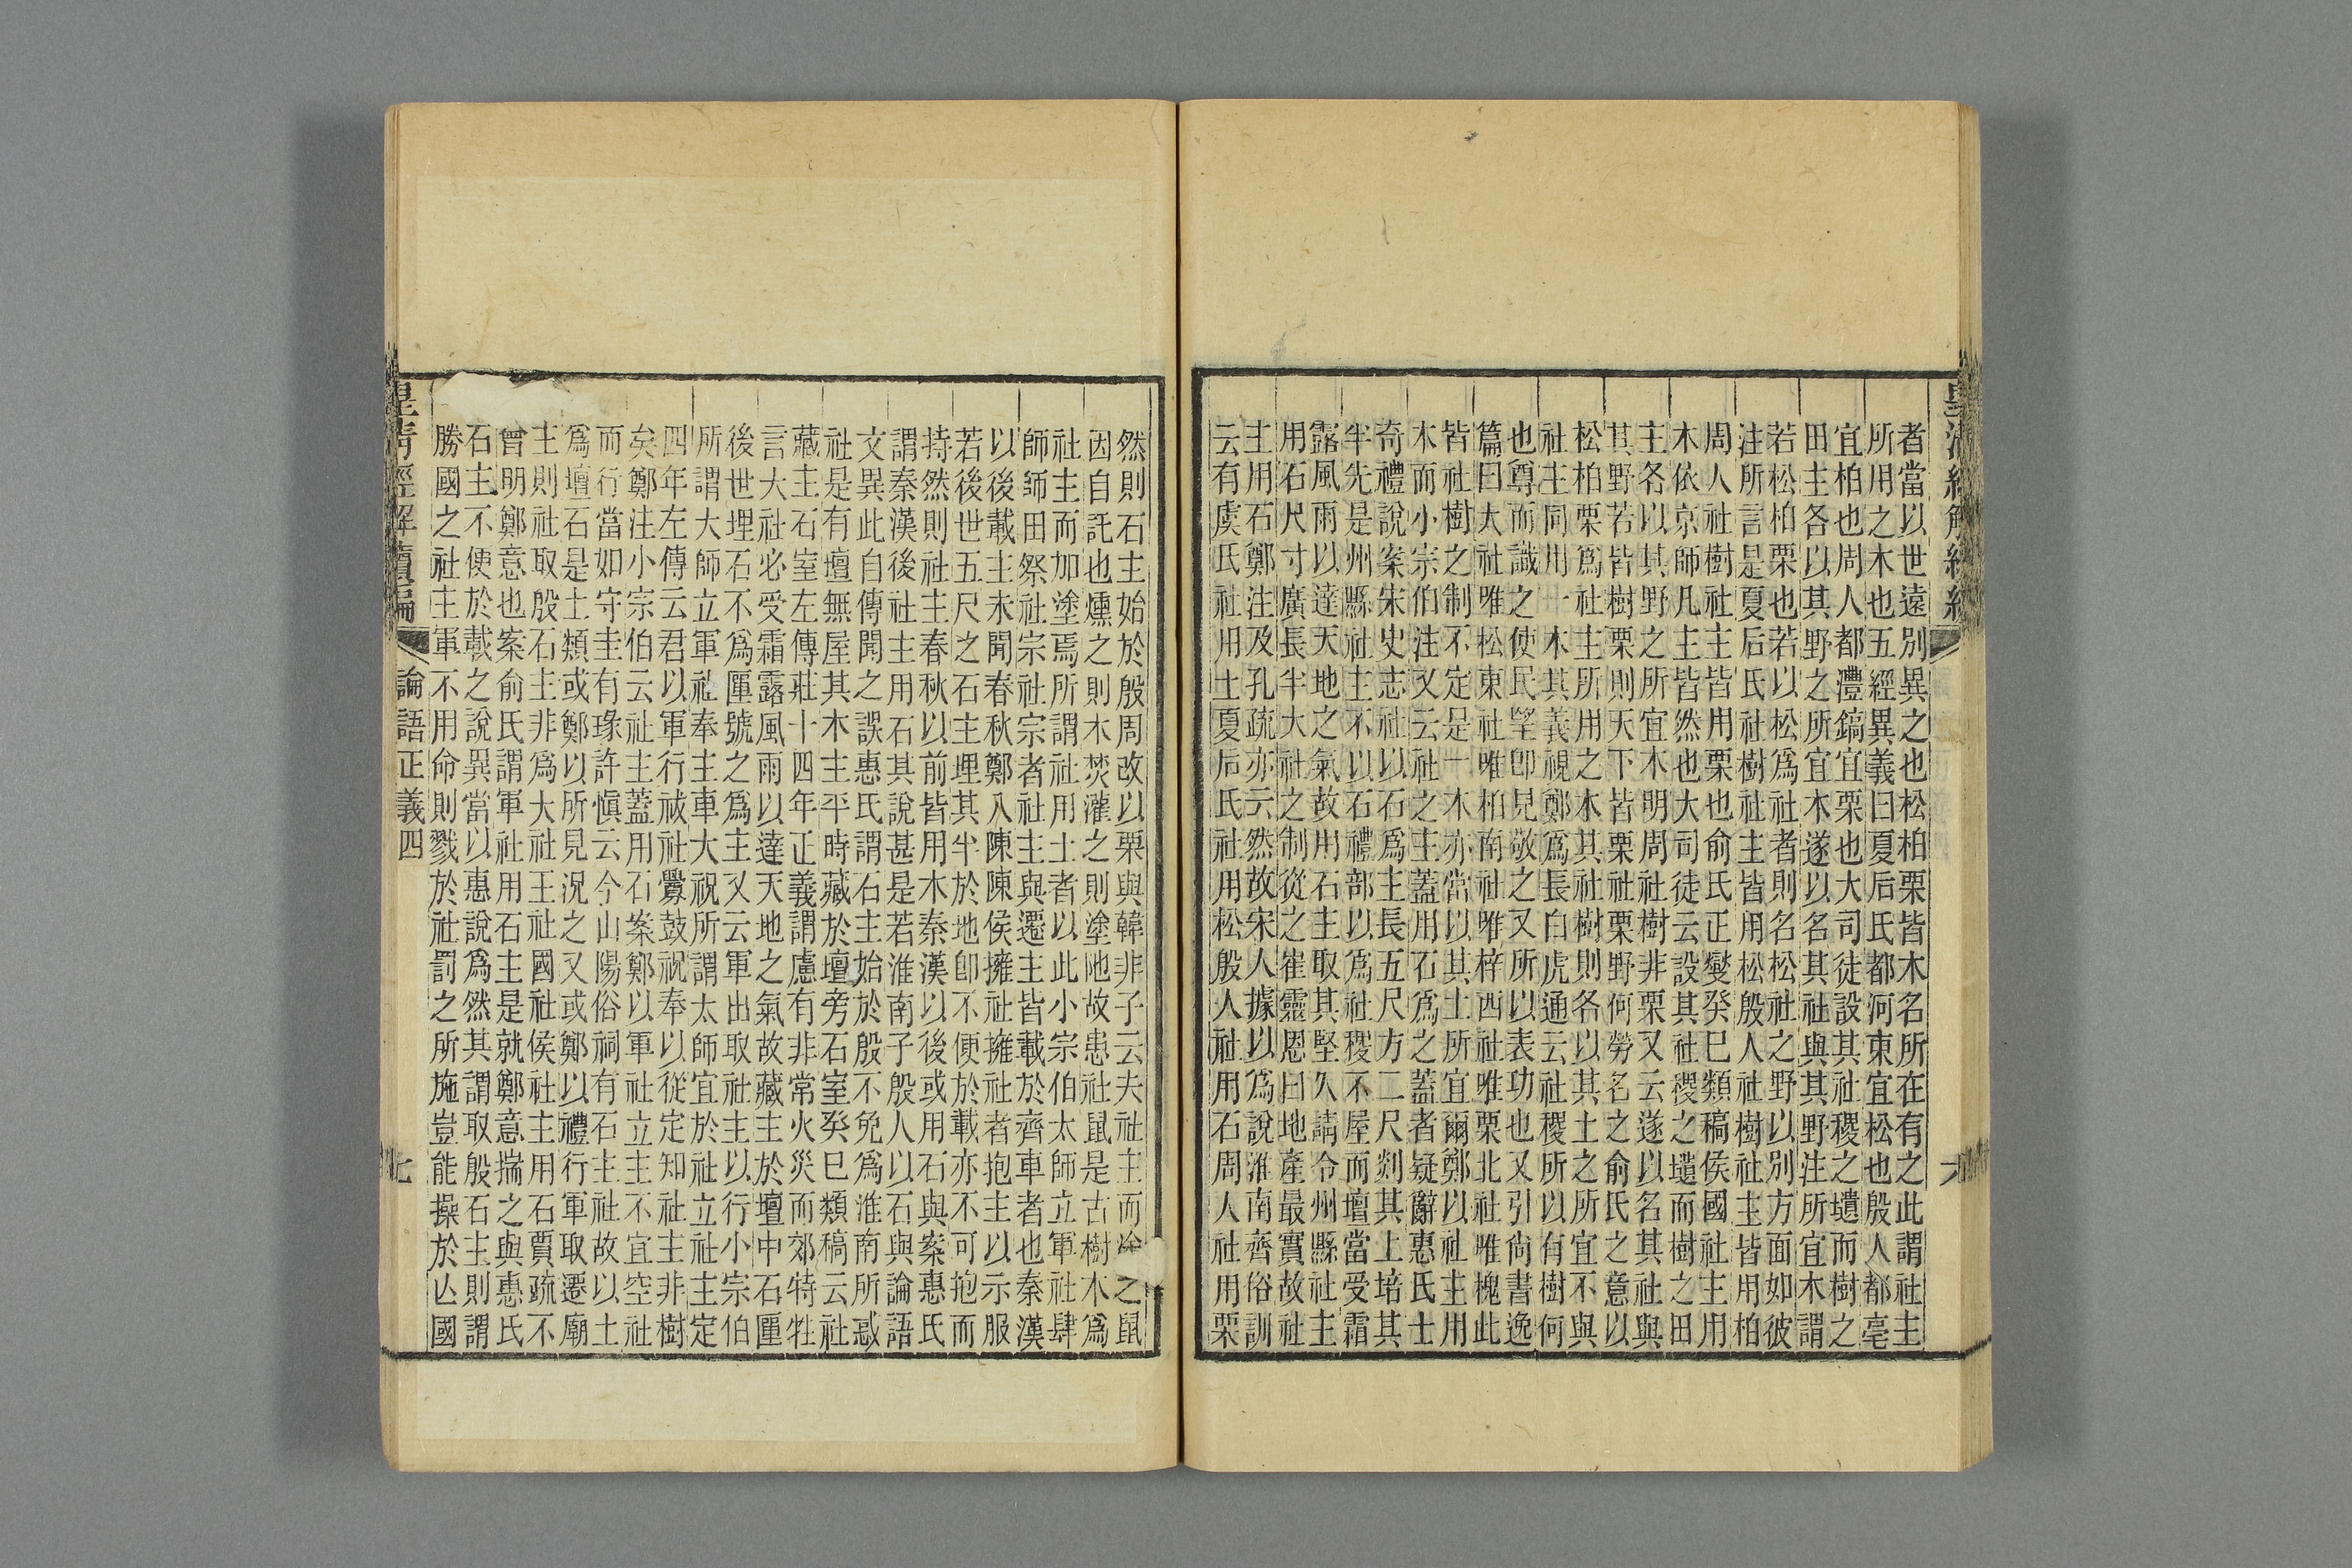 皇清經解續編
六
者當以世遠別異之也松柏栗皆木名所在有之此謂社主
所用之木也五經異義曰夏后氏都河東宜松也殷人都亳
宜柏也周人都灃鎬宜栗也大司徒設其社稷之壝而樹之
田主各以其野之所宜木遂以名其社與其野注所宜木謂
若松柏栗也若以松爲社者則名松社之野以別方面如彼
注所言是夏后氏社樹社主皆用松殷人社樹社主皆用柏
周人社樹社主皆用栗也俞氏正燮癸巳類稿侯國社主用
木依京師凡主皆然也大司徒云設其社稷之壝而樹之田
主各以其野之所宜木明周社樹非栗又云遂以名其社與
其野若皆樹栗則天下皆栗社栗野何勞名之俞氏之意以
松柏栗爲社主所用之木其社樹則各以其土之所宜不與
社主同用一木其義視鄭爲長白虎通云社稷所以有樹何
也尊而識之使民望卽見敬之又所以表功也又引尙書逸
篇曰太社唯松東社唯柏南社唯梓西社唯栗北社唯槐此
皆社樹之制不定是一木亦當以其土所宜爾鄭以社主用
木而小宗伯注又云社之主蓋用石爲之蓋者疑辭惠氏士
奇禮說案宋史志社以石爲主長五尺方二尺剡其上培其
半先是州縣社主不以石禮部以爲社稷不屋而壇當受霜
露風雨以達天地之氣故用石主取其堅久請令州縣社主
用石尺寸廣長半大社之制從之崔靈恩曰地產最實故社
主用石鄭注及孔疏亦云然故宋人據以爲說淮南齊俗訓
云有虞氏社用土夏后氏社用松殷人社用石周人社用栗
然則石主始於殷周改以栗與韓非子云夫社主而塗之鼠
因自託也燻之則木焚灌之則塗阤故患社鼠是古樹木爲
社主而加塗焉所謂社用土者以此小宗伯太師立軍社肆
師師田祭社宗社宗者社主與遷主皆載於齊車者也秦漢
以後載主未聞春秋鄭入陳陳侯擁社擁社者抱主以示服
若後世五尺之石主埋其半於地卽不便於載亦不可抱而
持然則社主春秋以前皆用木秦漢以後或用石與案惠氏
謂秦漢後社主用石其說甚是若淮南子殷人以石與論語
文異此自傳聞之誤惠氏謂石主始於殷不免爲淮南所惑
社是有壇無屋其木主平時藏於壇旁石室癸巳類稿云社
藏主石室左傳莊十四年正義謂慮有非常火災而郊特牲
言大社必受霜露風雨以達天地之氣故藏主於壇中石匰
後世埋石不爲匰號之爲主又云軍出取社主以行小宗伯
所謂大師立軍社奉主車大祝所謂太師宜於社立社主定
四年左傳云君以軍行祓社釁鼓祝奉以從定知社主非樹
矣鄭注小宗伯云社主蓋用石案鄭以軍社立主不宜空社
而行當如守圭有瑑許愼云今山陽俗祠有石主社故以土
爲壇石是土類或鄭以所見況之又或鄭以禮行軍取遷廟
主則社取殷石主非爲大社王社國社侯社主用石賈疏不
曾明鄭意也案俞氏謂軍社用石主是就鄭意揣之與惠氏
石主不便於載之說異當以惠說爲然其謂取殷石主則謂
勝國之社主軍不用命則戮於社罰之所施豈能操於亾國
皇清經解續編
論語正義四
七